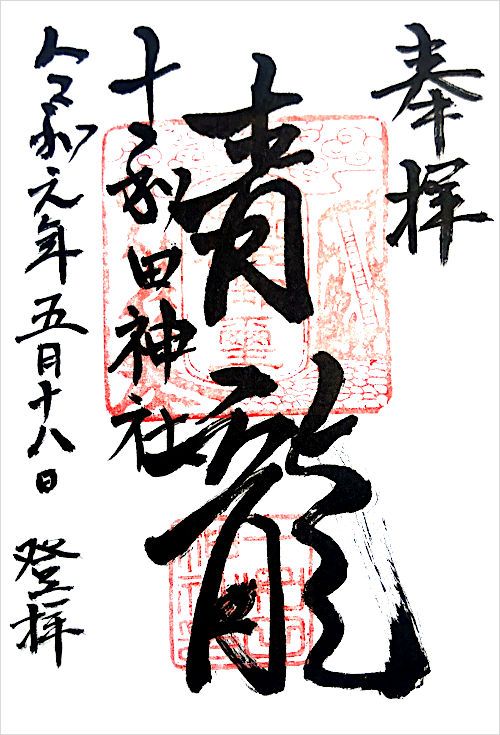 奉拝
青龍
十和田神社
令和元年五月十八日 登拝